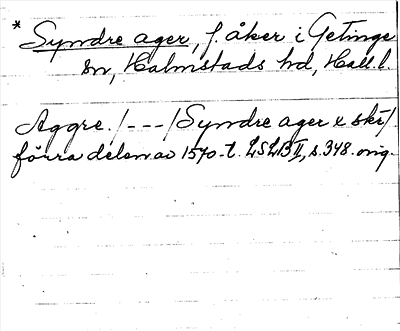 * Syndre ager, f. åker i Getinge
sn, Halmstads hd, Hall.l.
Aggre. /---/ Syndre ager e skr/.
förra delen av 1570-t. LSLB II, s. 348. orig.